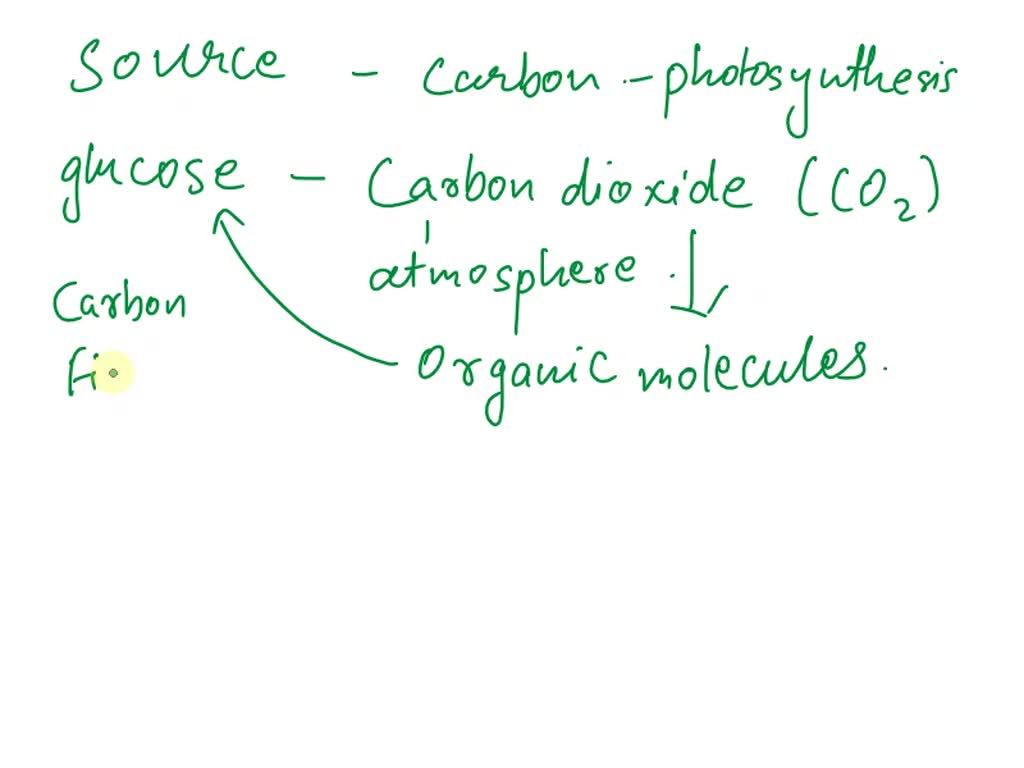 Source - Carbon - photosynthesis
glucose - Carbon dioxide (CO2)
atmosphere.
Carbon
Fi
Organic molecules.